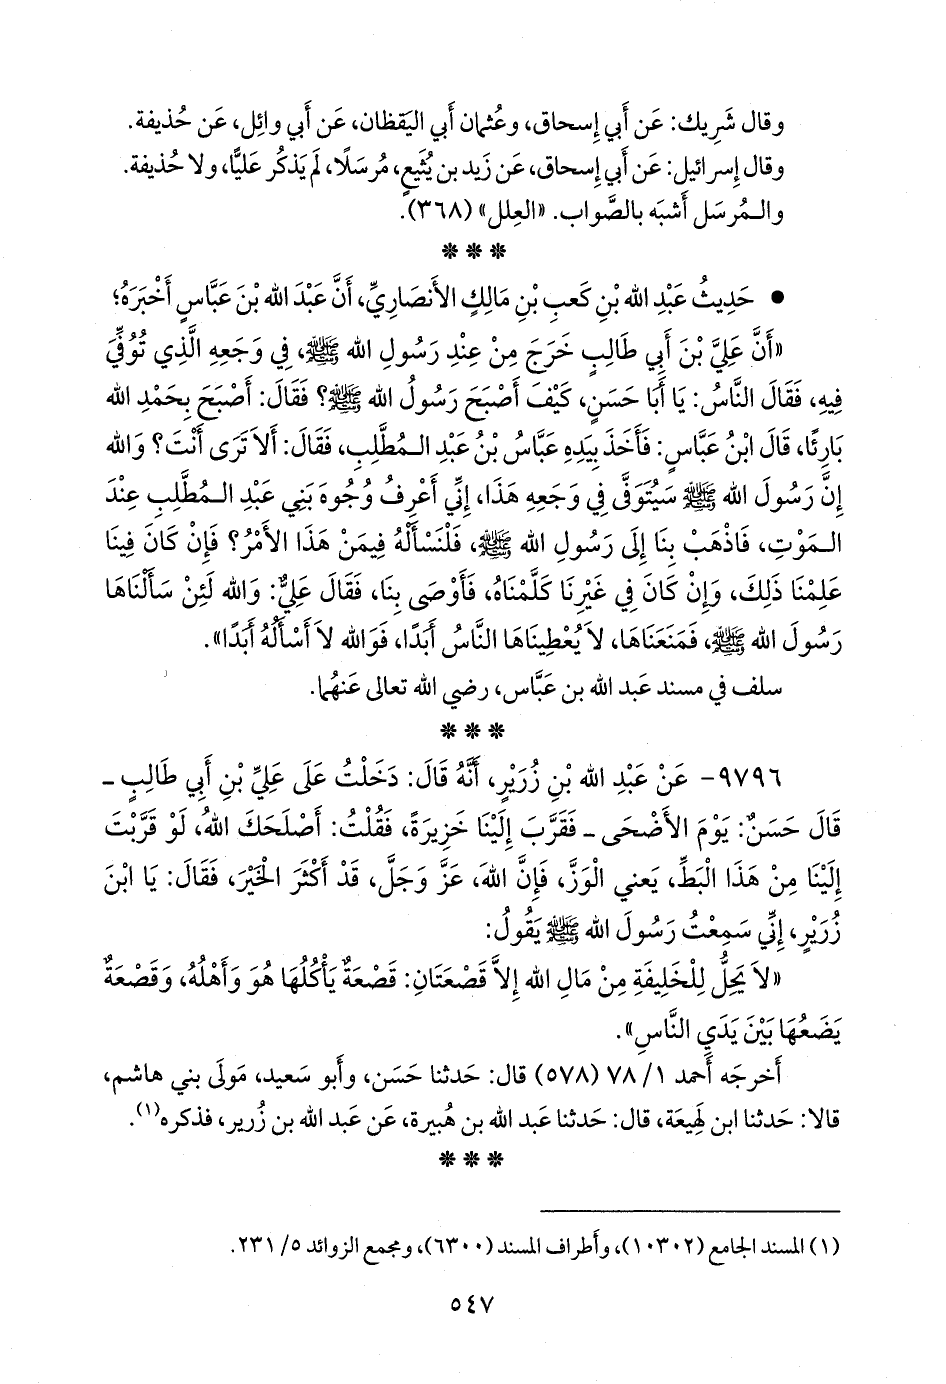 وقال شَرِيك: عَن أَبي إِسحاق، وعُثمان أَبي اليَقظان، عَن أَبي وائِل، عَن حُذيفة.
وقال إِسرائيل: عَن أَبي إِسحاق، عَن زَيد بن يُثَيعٍ، مُرسَلًا، لَم يَذكُر عَليًّا، ولا حُذيفة.
والـمُرسَل أَشبَه بالصَّواب. «العِلل» (٣٦٨).
* * *
• حَدِيثُ عَبْدِ الله بْنِ كَعبِ بْنِ مَالِكٍ الأَنصَارِيِّ، أَنَّ عَبْدَ الله بْنَ عَبَّاس أَخْبَرَهُ؛
«أَنَّ عَلِيَّ بْنَ أَبِي طَالِبٍ خَرَجَ مِنْ عِنْدِ رَسُولِ الله ﷺ، فِي وَجَعِهِ الَّذِي تُوُفِّيَ
فِيهِ، فَقَالَ النَّاسُ: يَا أَبَا حَسَنٍ، كَيْفَ أَصْبَحَ رَسُولُ الله ﷺ؟ فَقَالَ: أَصْبَحَ بِحَمْدِ الله
بَارِئًا، قَالَ ابْنُ عَبَّاسٍ: فَأَخَذَ بِيَدِهِ عَبَّاسُ بْنُ عَبْدِ الـمُطَّلِبِ، فَقَالَ: أَلَا تَرَى أَنْتَ؟ وَالله
إِنَّ رَسُولَ الله ﷺ سَيُتَوَفَّى فِي وَجَعِهِ هَذَا، إِنِّي أَعْرِفُ وُجُوهَ بَنِي عَبْدِ الـمُطَّلِبِ عِنْدَ
الـمَوْتِ، فَاذْهَبْ بِنَا إِلَى رَسُولِ الله ﷺ، فَلْنَسْأَلْهُ فِيمَنْ هَذَا الأَمْرُ؟ فَإِنْ كَانَ فِينَا
عَلِمْنَا ذَلِكَ، وَإِنْ كَانَ فِي غَيْرِنَا كَلَّمْنَاهُ، فَأَوْصَى بِنَا، فَقَالَ عَلِيٌّ: وَالله لَئِنْ سَأَلْنَاهَا
رَسُولَ الله ﷺ، فَمَنَعَنَاهَا، لَا يُعْطِينَاهَا النَّاسُ أَبَدًا، فَوَالله لَا أَسْأَلُهُ أَبَدًا».
سلف في مسند عَبد الله بن عَبَّاس، رضي الله تعالى عَنهُما.
* * *
٩٧٩٦- عَنْ عَبْدِ الله بْنِ زُرَيْرٍ، أَنَّهُ قَالَ: دَخَلْتُ عَلَى عَلِيِّ بْنِ أَبِي طَالِبٍ -
قَالَ حَسَنٌ: يَوْمَ الأَضْحَى - فَقَرَّبَ إِلَيْنَا خَزِيرَةً، فَقُلْتُ: أَصْلَحَكَ اللهُ، لَوْ قَرَّبْتَ
إِلَيْنَا مِنْ هَذَا الْبَطِّ، يَعني الْوَزَّ، فَإِنَّ اللهَ، عَزَّ وَجَلَّ، قَدْ أَكْثَرَ الْخَيْرَ، فَقَالَ: يَا ابْنَ
زُرَيْرٍ، إِنِّي سَمِعْتُ رَسُولَ الله ﷺ يَقُولُ:
«لَا يَحِلُّ لِلْخَلِيفَةِ مِنْ مَالِ الله إِلاَّ قَصْعَتَانِ: قَصْعَةٌ يَأْكُلُهَا هُوَ وَأَهْلُهُ، وَقَصْعَةٌ
يَضَعُهَا بَيْنَ يَدَيِ النَّاسِ».
أَخرجَه أَحمد ١/ ٧٨ (٥٧٨) قال: حَدثنا حَسَن، وأَبو سَعيد، مَولى بني هاشم،
قالا: حَدثنا ابن لَهِيعَة، قال: حَدثنا عَبد الله بن هُبيرة، عَن عَبد الله بن زُرير، فذكره(١).
* * *
(١) المسند الجامع (١٠٣٠٢)، وأطراف المسند (٦٣٠٠)، ومجمع الزوائد ٥/ ٢٣١.
٥٤٧